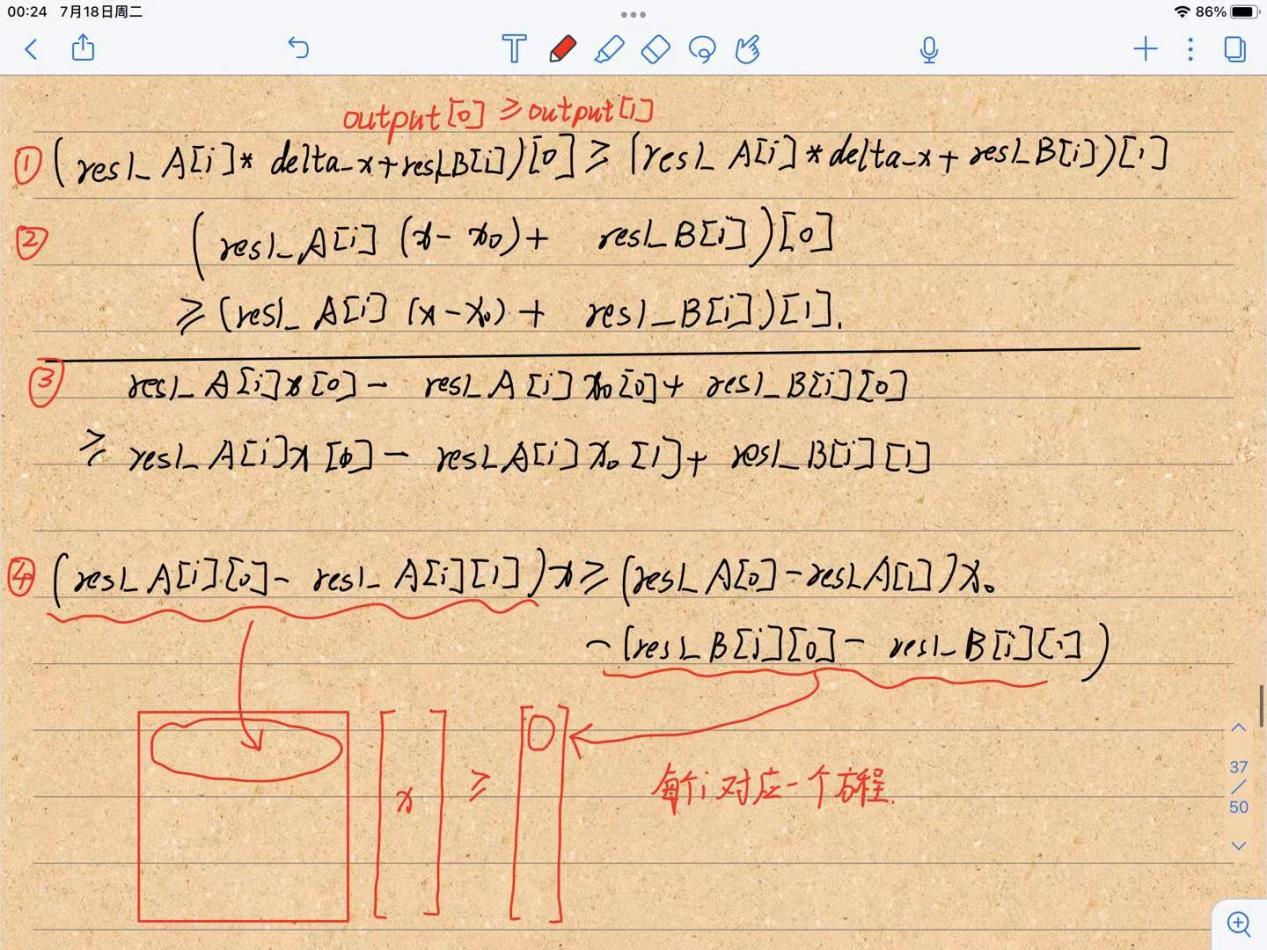 00:24 7月18日周二
86%
output[0] ≥ output[1]
① (res1_A[i]* delta_x+res1_B[i])[0] ≥ (res1_A[i]*delta_x+res1_B[i])[1]
② (res1_A[i](x-x₀)+ res1_B[i])[0]
≥(res1_A[i](x-x₀)+ res1_B[i])[1].
③ res1_A[i]x[0]- res1_A[i]x₀[0]+ res1_B[i][0]
≥ res1_A[i]x[0]- res1_A[i]x₀[1]+ res1_B[i][1]
④ (res1_A[i][0]- res1_A[i][1])x≥(res1_A[0]-res1_A[1])x₀
-(res1_B[i][0]- res1_B[i][1])
[x] ≥ [0]
每个i对应一个方程.
37
/
50